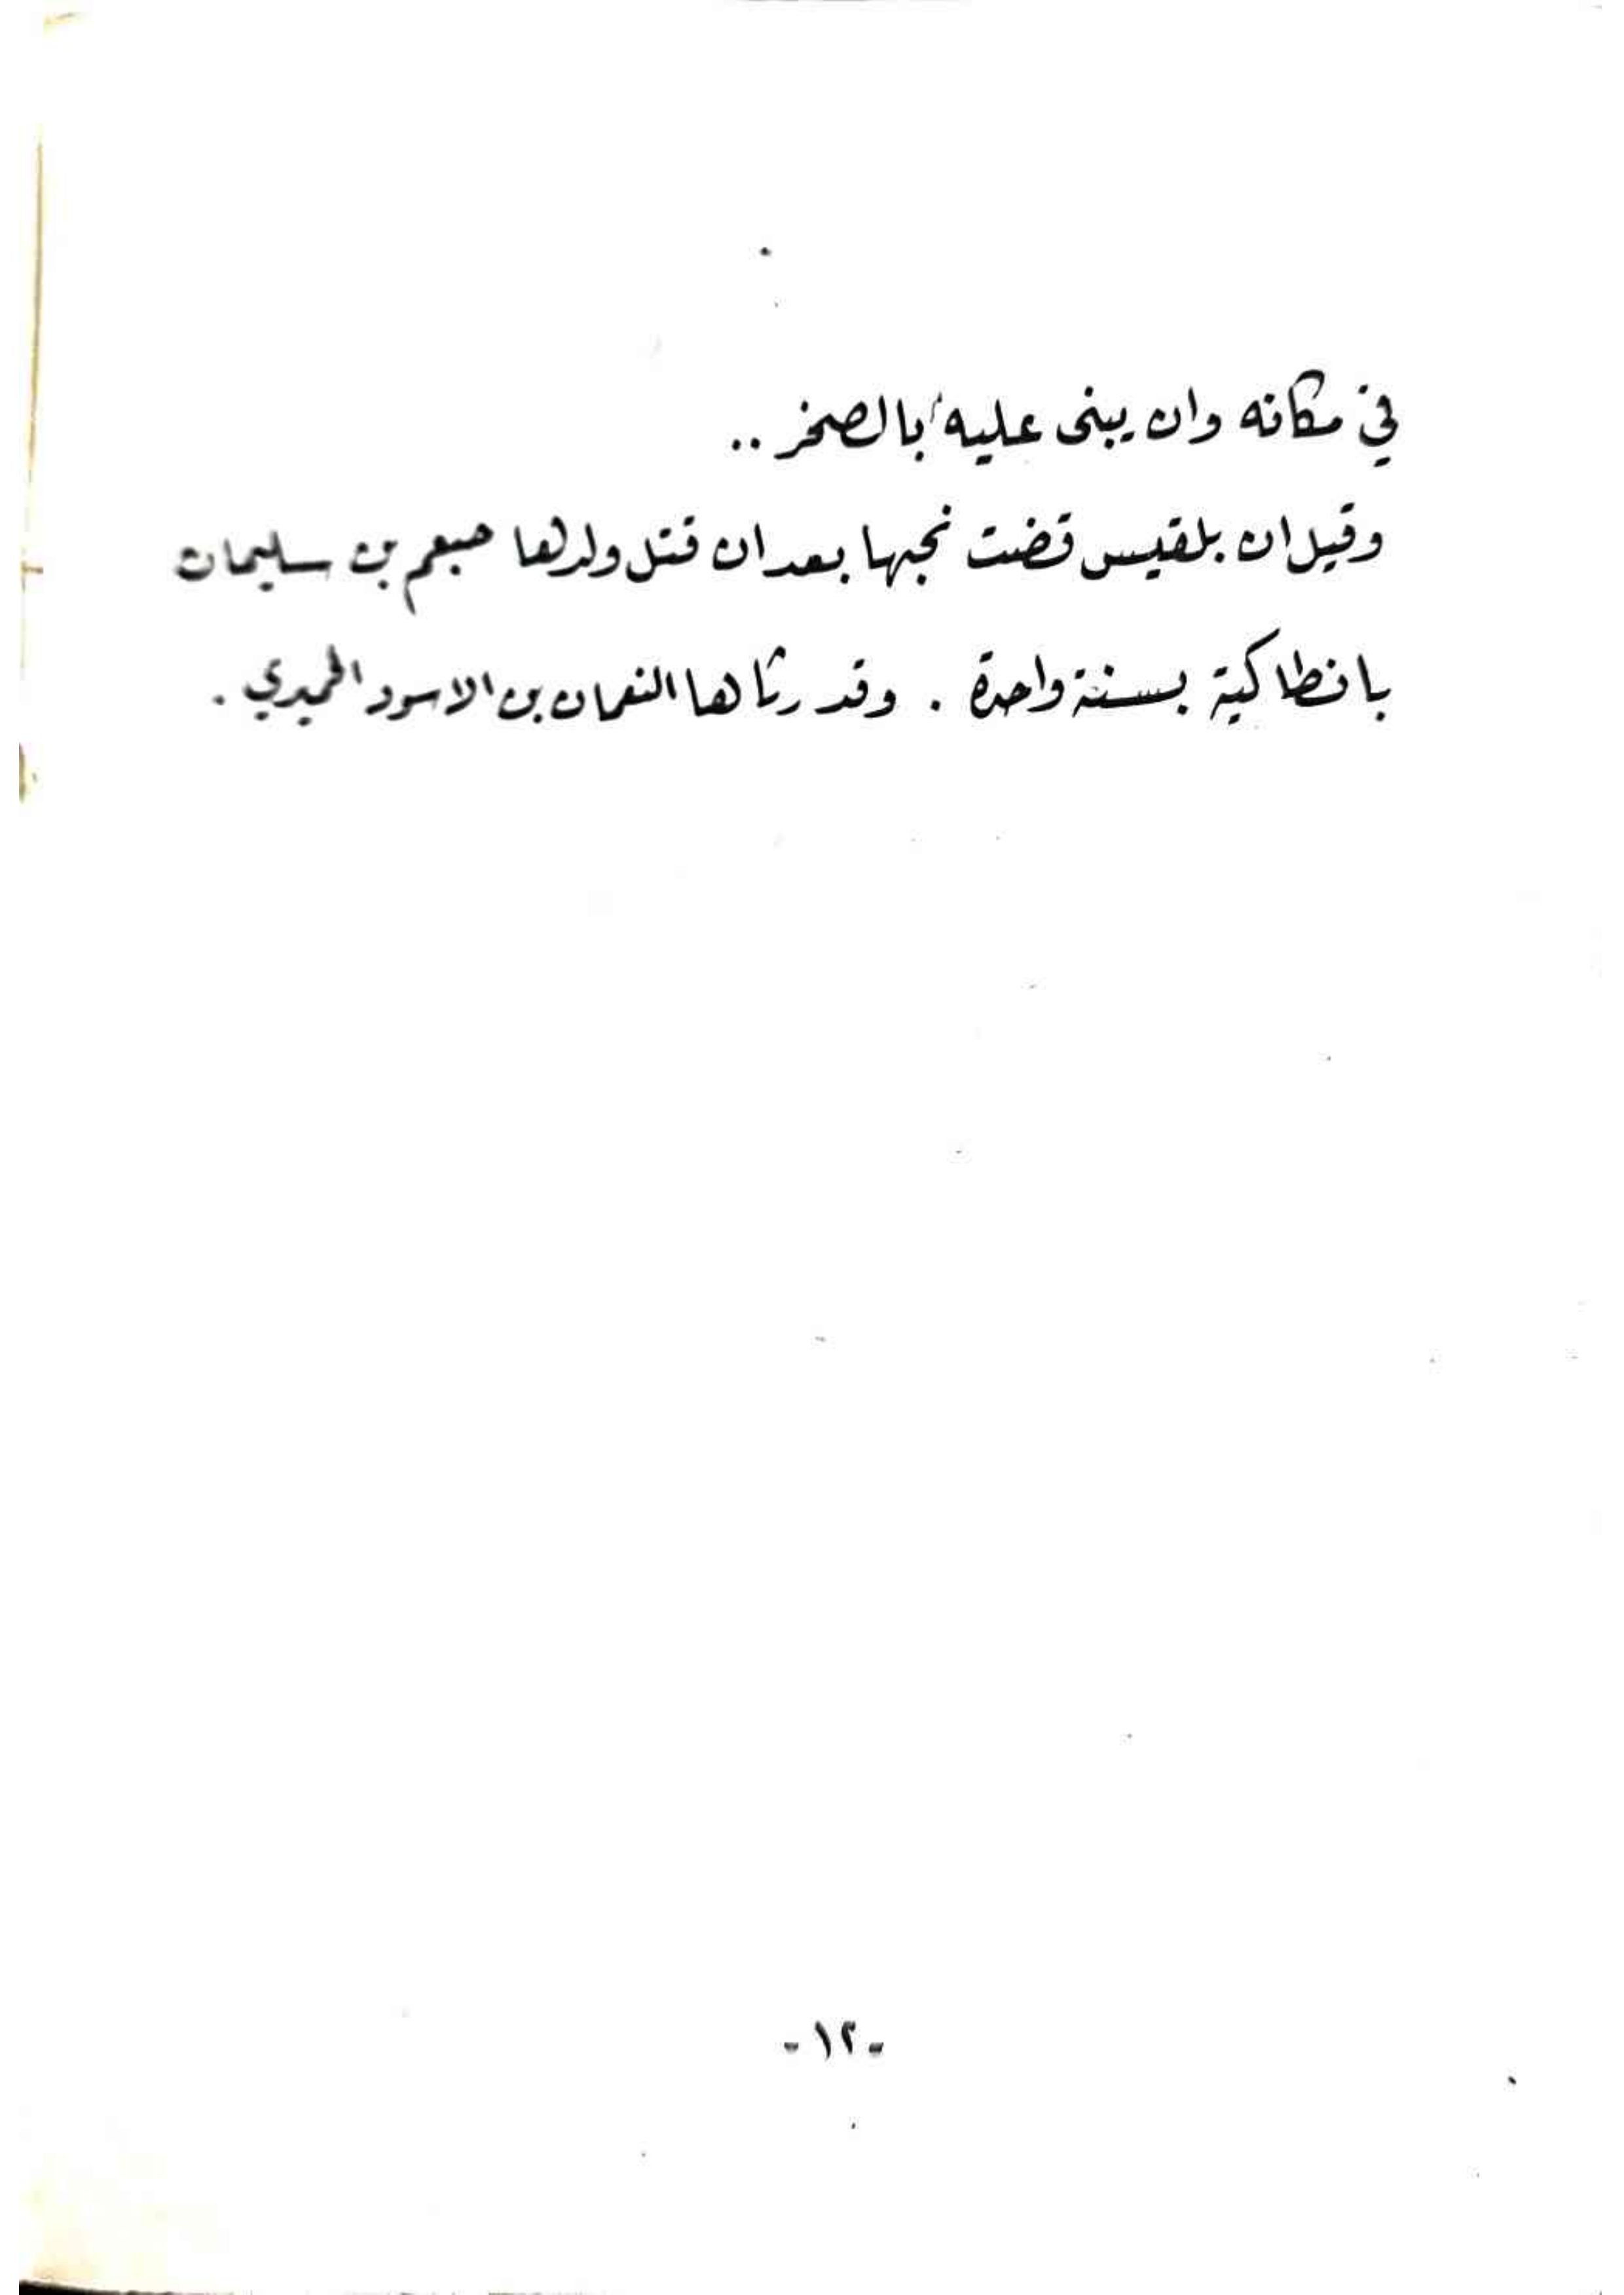 في مكانه وان يبنى عليه بالصخر ..
وقيل ان بلقيس قضت نحبها بعد ان قتل ولدها بن سليمان
بانطاكية بسنة واحدة . وقد رثاها النعمان بن الاسود الحميري .
- ١٢ -